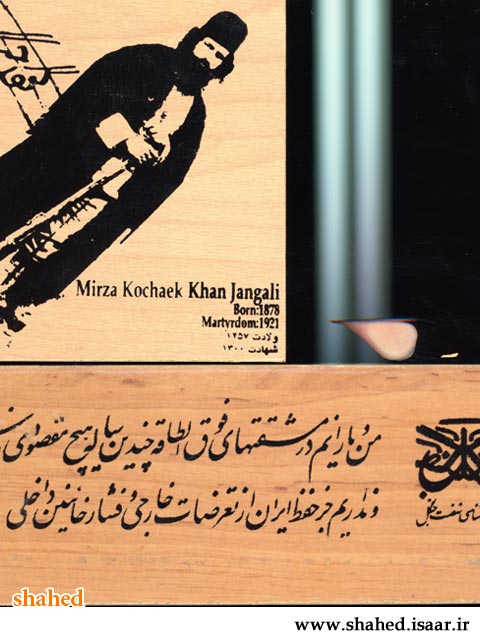 Mirza Kochaek Khan Jangali
Born:1878
Martyrdom:1921
ولادت ۱۲۵۷
شهادت ۱۳۰۰
من و یارانم در مشقتهای فوق الطاقه چندین ساله هیچ مقصودی
و نداریم جز حفظ ایران از تعرضات خارجی و فشار خائنین داخلی
نهضت جنگل
shahed
www.shahed.isaar.ir